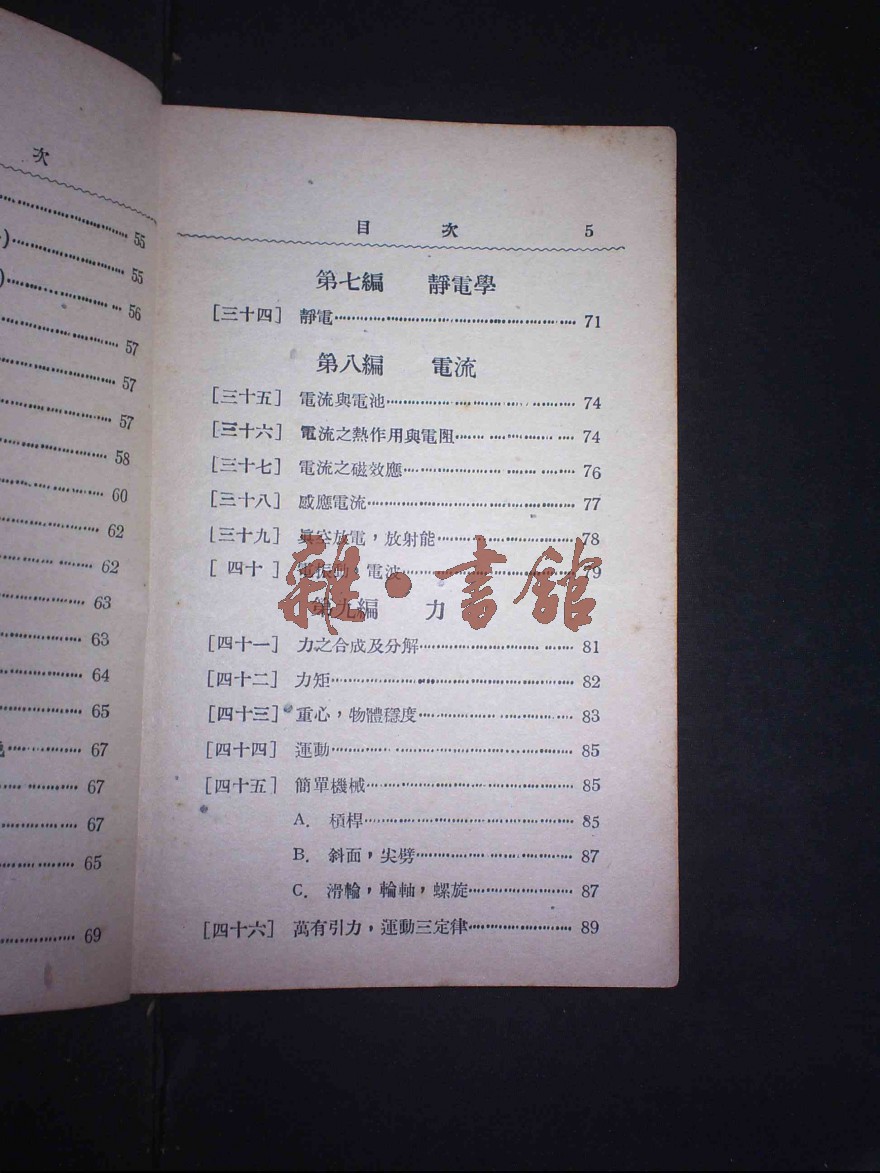 次
55
)
55
)
56
57
57
57
58
60
62
62
63
63
64
65
67
67
67
65
69
目 次 5
第七編 靜電學
[三十四] 靜電 71
第八編 電流
[三十五] 電流與電池 74
[三十六] 電流之熱作用與電阻 74
[三十七] 電流之磁效應 76
[三十八] 感應電流 77
[三十九] 眞空放電，放射能 78
[四十] 電振動，電波 79
第九編 力
[四十一] 力之合成及分解 81
[四十二] 力矩 82
[四十三] 重心，物體穩度 83
[四十四] 運動 85
[四十五] 簡單機械 85
A. 槓桿 85
B. 斜面，尖劈 87
C. 滑輪，輪軸，螺旋 87
[四十六] 萬有引力，運動三定律 89
雜·書館